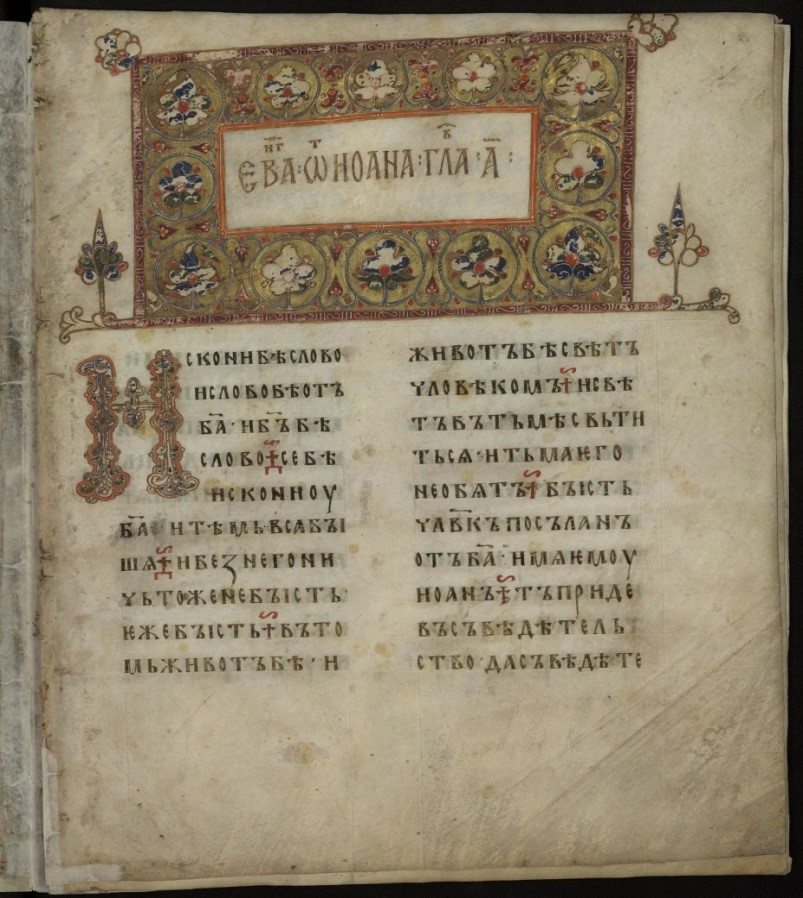 ЕВАН҃Г·Ѡ҃Т ИОАНА·ГЛАВ҃·А҃:
ИСКОНИБѢСЛОВО
ИСЛОВОБѢОТЪ
Б҃А·ИБ҃ЪБѢ
СЛОВО·СЕБѢ
ИСКОНИОУ
Б҃А·ИТѢМЬВСАБЪІ
ШѦ·ИБЕЗНЕГОНИ
ЧЬТОЖЕНЕБЪІСТЬ·
ѤЖЕБЪІСТЬ·ВЪТО
МЬЖИВОТЪБѢ·И
ЖИВОТЪБѢСВѢТЪ
ЧЛОВѢКОМЪ·ИСВѢ
ТЪВЪТЬМѢСВЬТИ
ТЬСѦ·ИТЬМАѤГО
НЕОБѦТЪ·БЪІСТЬ
ЧЛ҃ВКЪПОСЪЛАНЪ
ОТЪБ҃А·ИМѦѤМОУ
ИОАНЪ·ТЪПРИДЕ
ВЪСЪВѢДѢТЕЛЬ
СТВО·ДАСЪВѢДѢТЕ